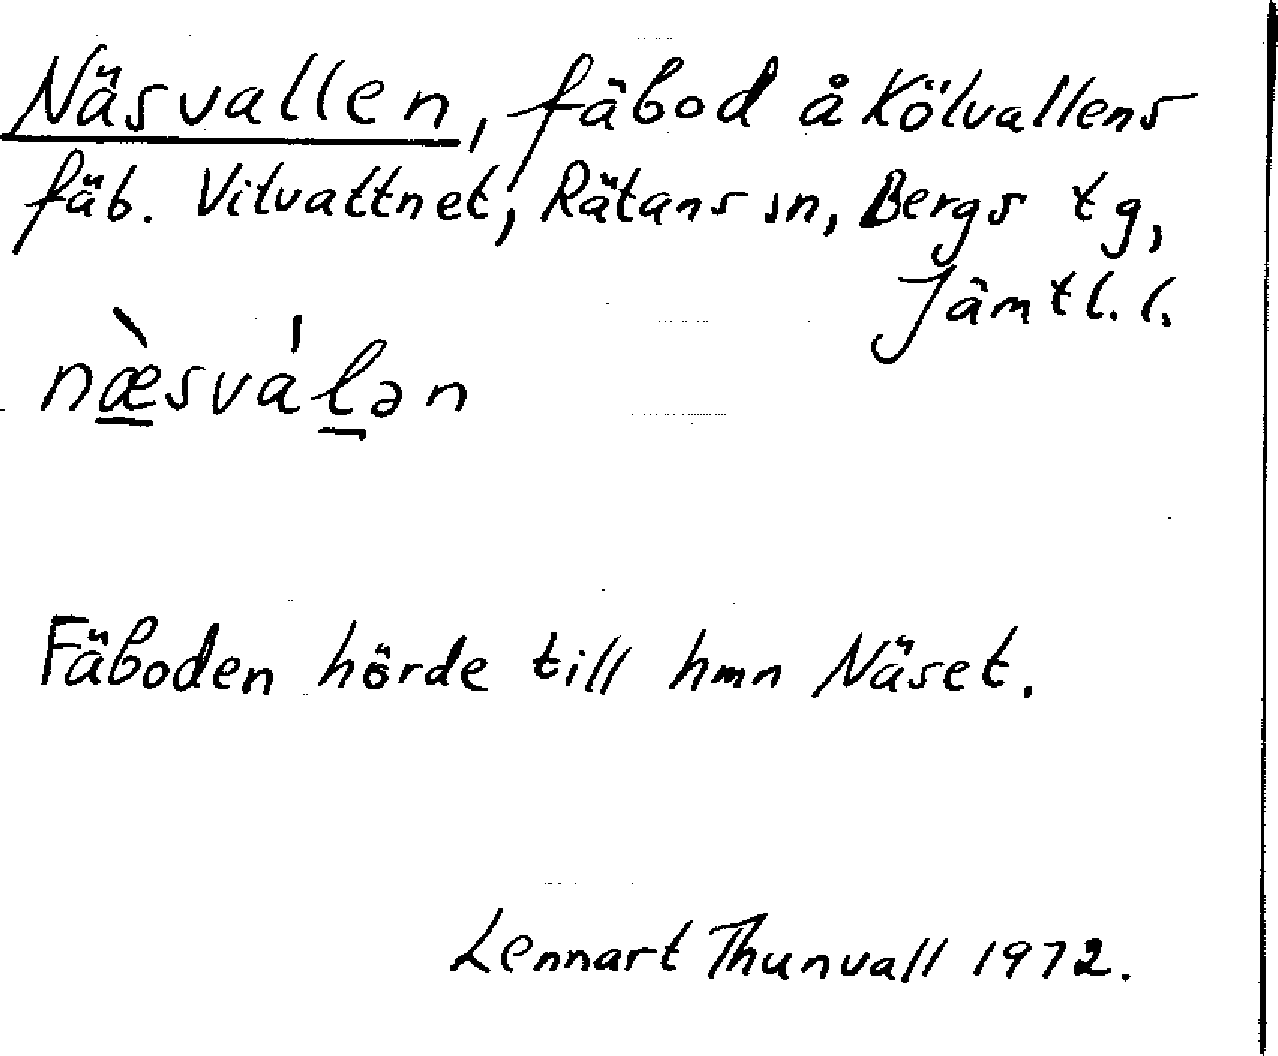 Näsvallen, fäbod å Kölvallens
fäb. Vitvattnet, Rätans sn, Bergs tg,
Jämtl. l.
næ̀sválən
Fäboden hörde till hmn Näset.
Lennart Thunvall 1972.